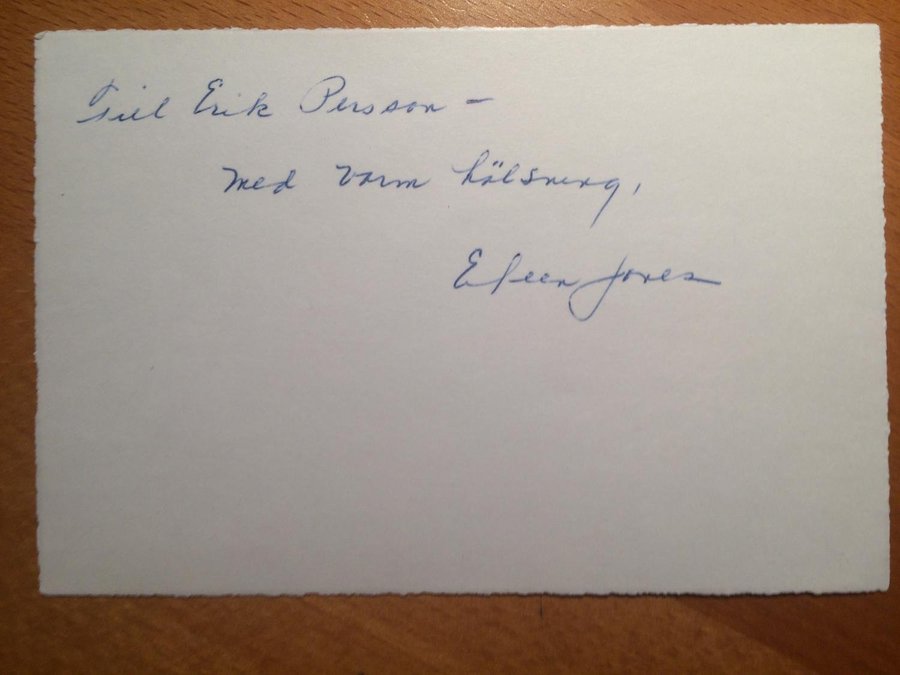 Till Erik Persson -
med varm hälsning,
Eileen Jones